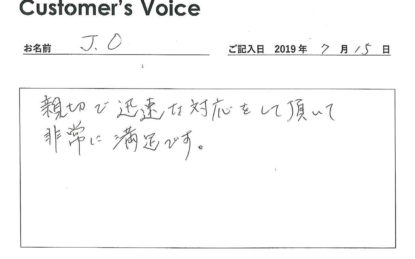 Customer's Voice
お名前 J.O ご記入日 2019 年 7 月 15 日
親切で迅速な対応をして頂いて
非常に満足です。